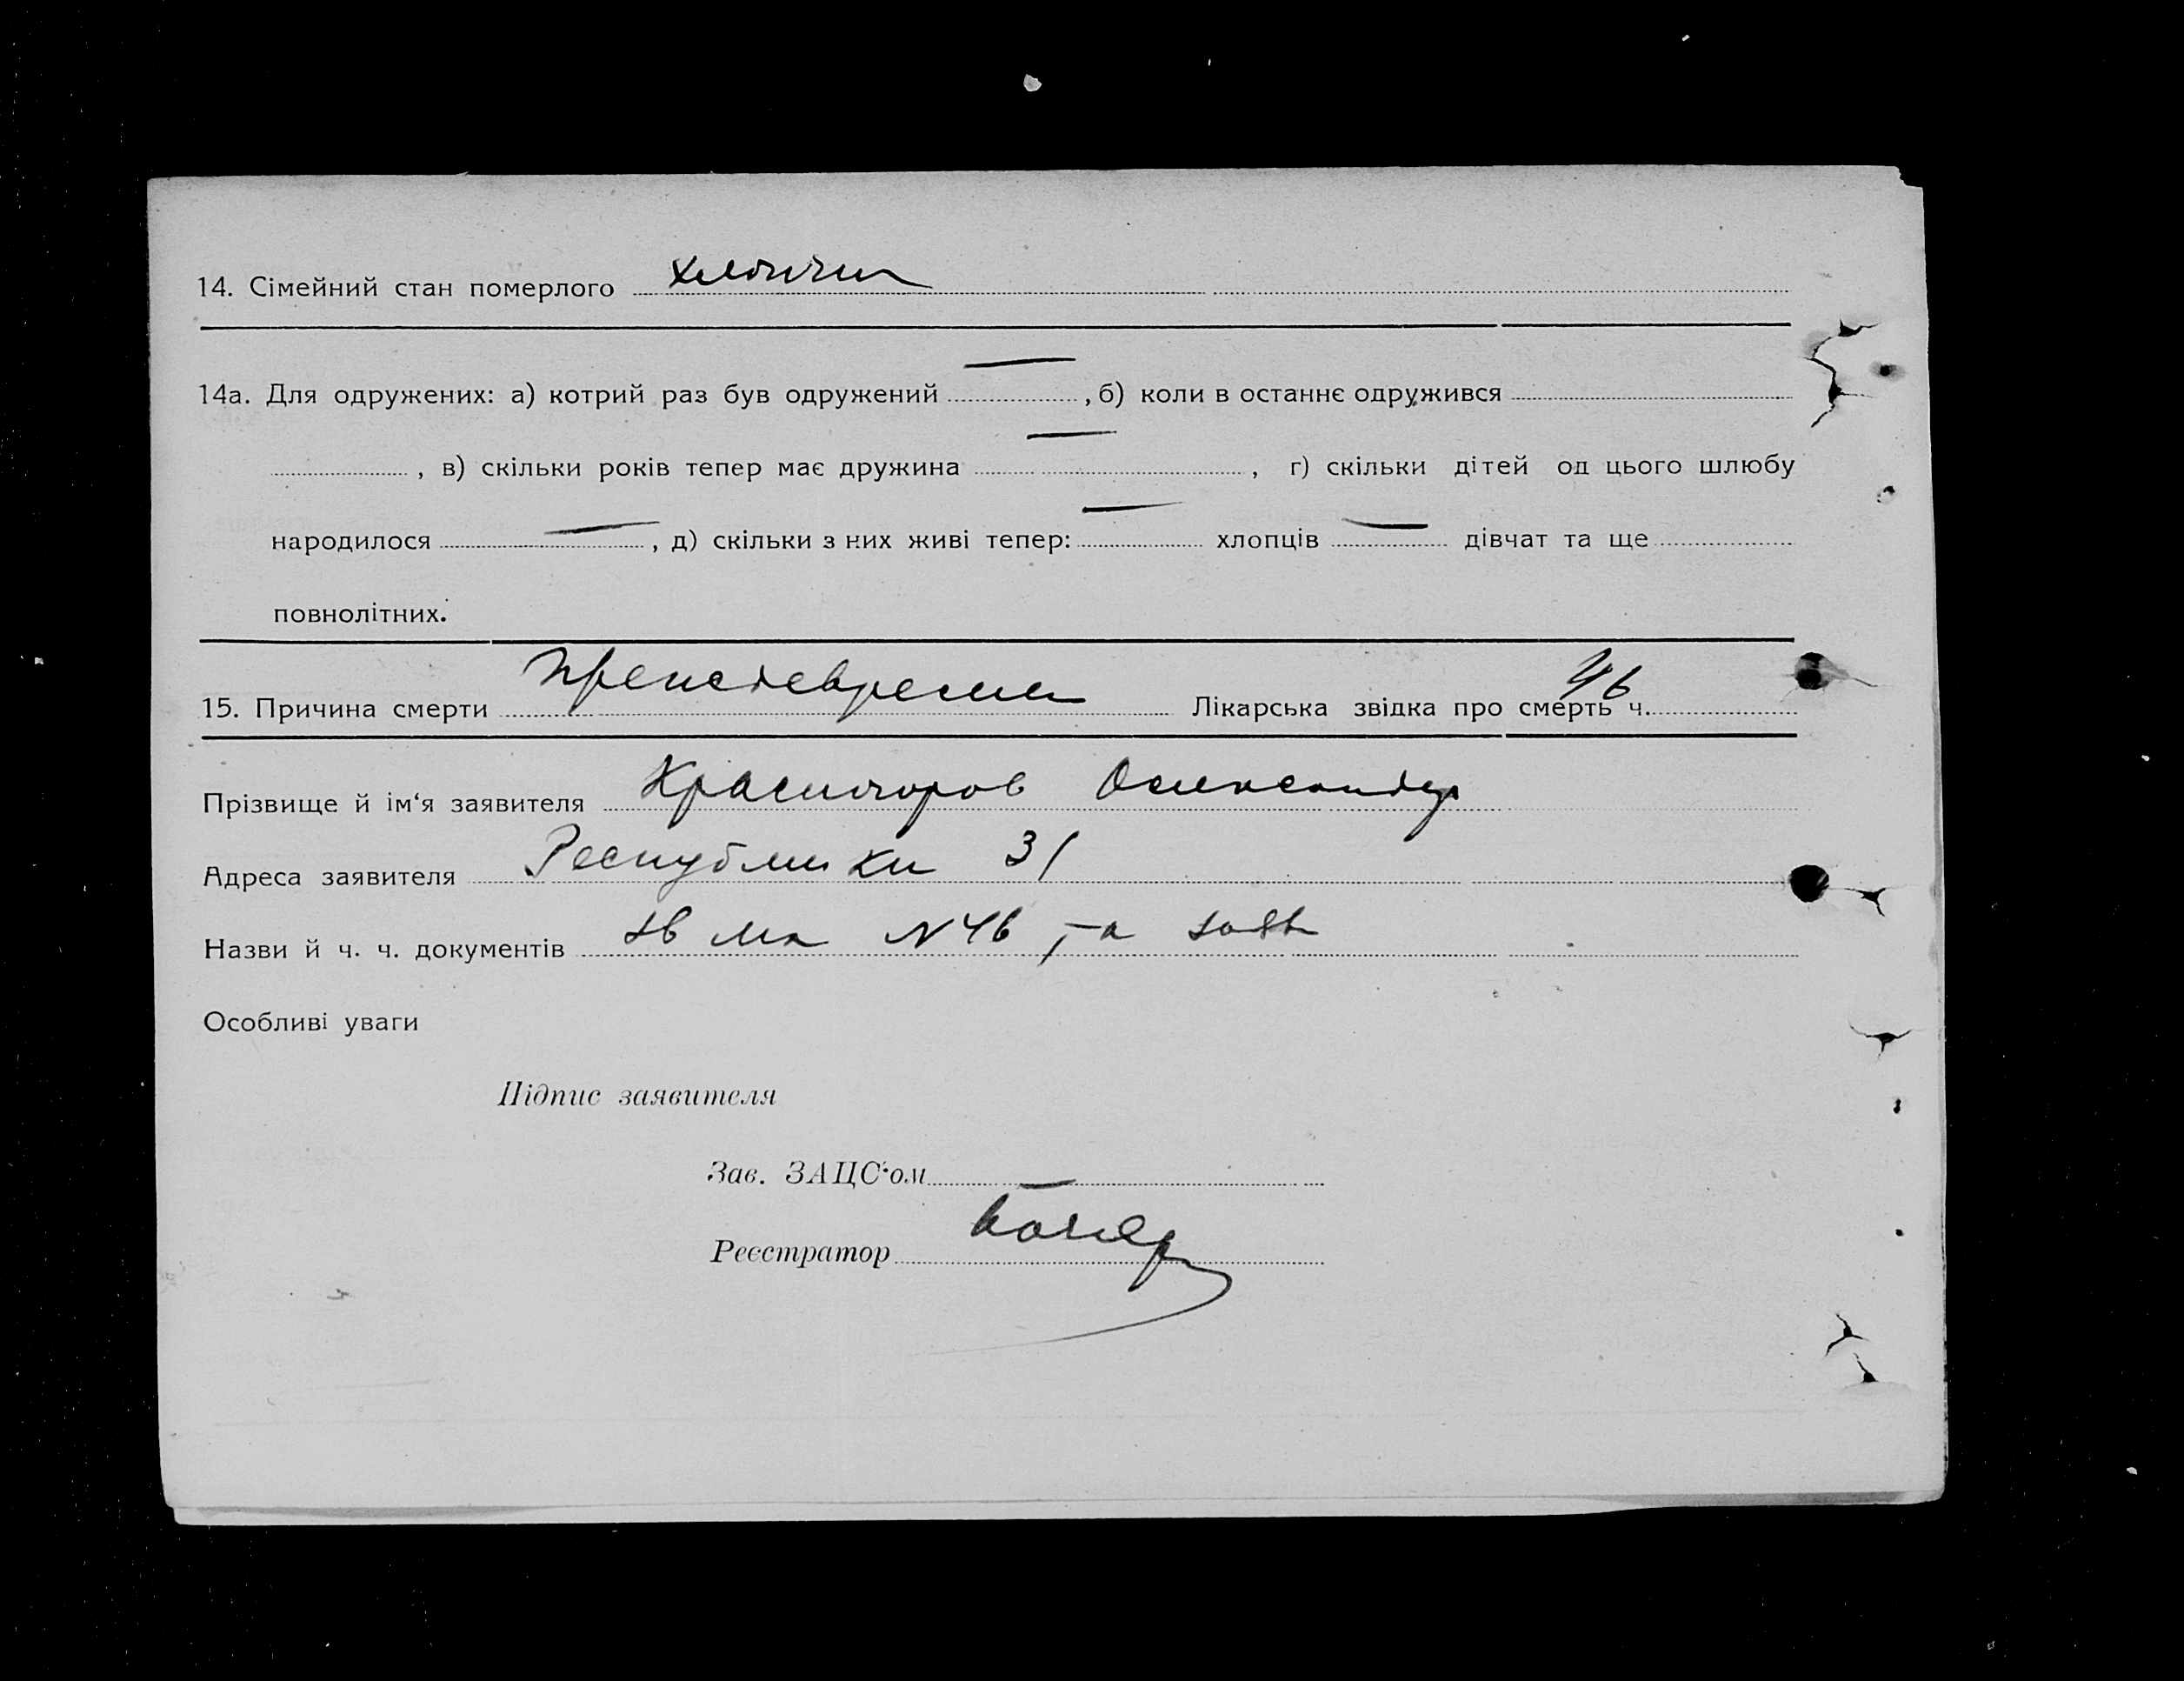 14. Сімейний стан померлого хлопчик
14а. Для одружених: а) котрий раз був одружений — , б) коли в останнє одружився
, в) скільки років тепер має дружина — , г) скільки дітей од цього шлюбу
народилося — , д) скільки з них живі тепер: — хлопців — дівчат та ще
повнолітних.
15. Причина смерти Лікарська звідка про смерть ч. 46
Прізвище й ім‘я заявителя Олександр
Адреса заявителя Республики 31
Назви й ч. ч. документів N 46 та заяв
Особливі уваги
Підпис заявителя
Зав. ЗАЦС‘ом —
Реєстратор